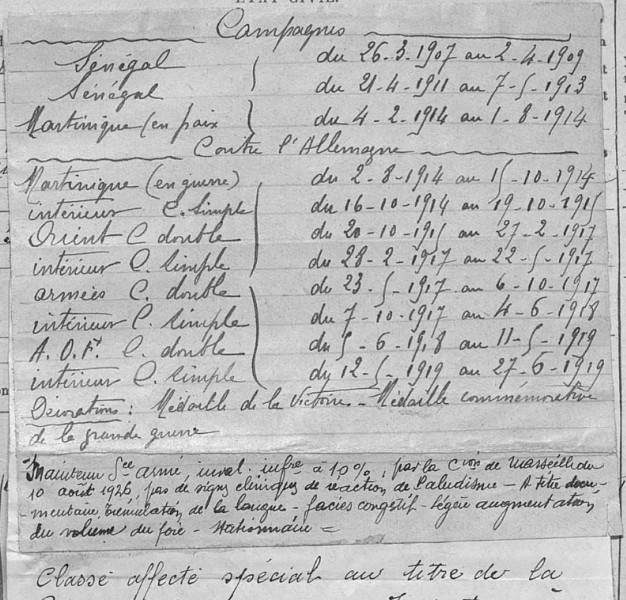 ETAT CIVIL.
Campagnes
Sénégal du 26-3-1907 au 2-4-1909
Sénégal du 21-4-1911 au 7-5-1913
Martinique (en paix du 4-2-1914 au 1-8-1914
Contre l'Allemagne
Martinique (en guerre) du 2-8-1914 au 15-10-1914
intérieur C. simple du 16-10-1914 au 19-10-1915
Orient C double du 20-10-1915 au 27-2-1917
intérieur C. simple du 28-2-1917 au 22-5-1917
armées C. double du 23-5-1917 au 6-10-1917
intérieur C. simple du 7-10-1917 au 4-6-1918
A.O.F. C. double du 5-6-1918 au 11-5-1919
intérieur C. simple du 12-5-1919 au 27-6-1919
Décorations: Médaille de la Victoire - Médaille commémorative
de la grande guerre
Maintenu Sce armé, inval. infre à 10%, par la Cion de Marseille du
10 août 1926, pas de signes cliniques de réaction de Paludisme - A titre docu-
-mentaire trémulation de la langue - faciès congestif - légère augmentation
du volume du foie - Stationnaire =
Classé affecté spécial au titre de la